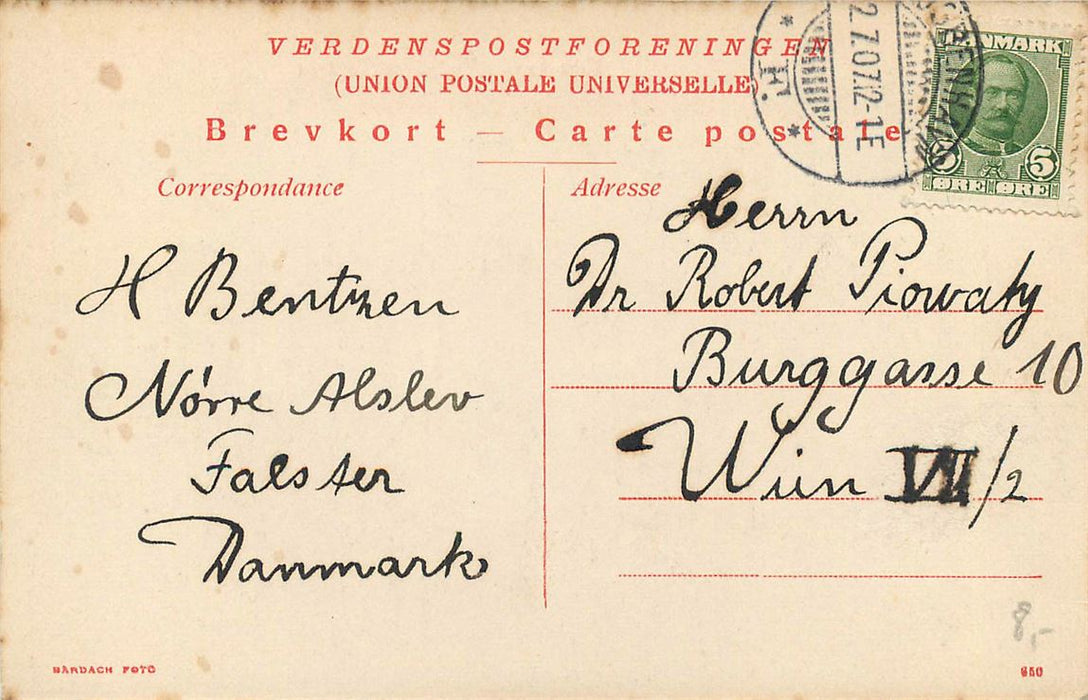 VERDENSPOSTFORENINGEN
(UNION POSTALE UNIVERSELLE)
Brevkort — Carte postale
Correspondance
H Bentzen
Nörre Alslev
Falster
Danmark
BÁRDACH FOTO
KJØBENHAVN
2.7.07. 12-1E
* F. *
DANMARK
5 5
ØRE ØRE
Adresse
Herrn
Dr Robert Piowaty
Burggasse 10
Wien VII/2
8,-
650